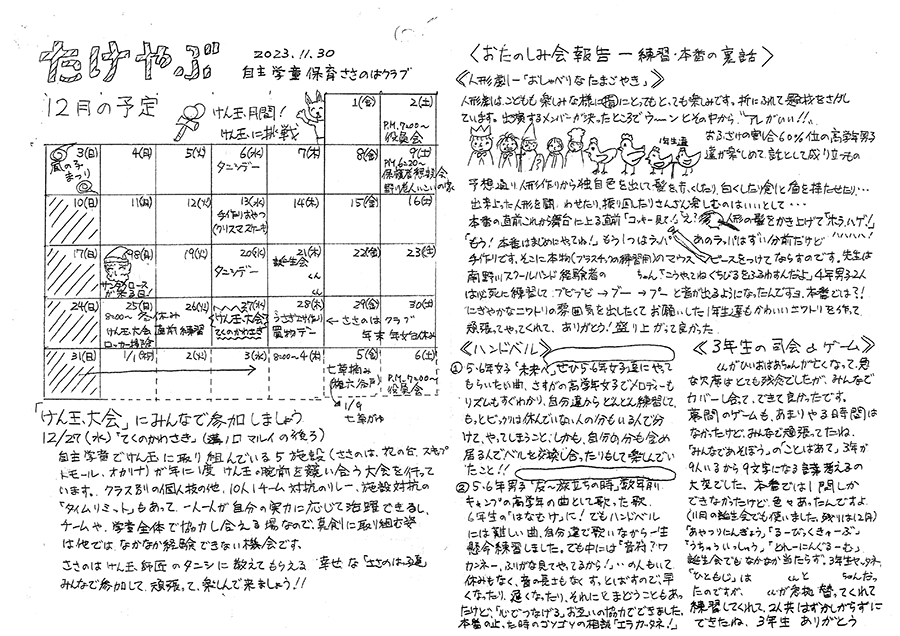 たけやぶ
2023.11.30
自主学童保育ささのはクラブ
12月の予定
けん玉月間!
けん玉に挑戦
1(金)
2(土)
P.M.7:00〜
役員会
3(日)
嵐の子
まつり
4(月)
5(火)
6(水)
タニンデー
7(木)
8(金)
9(土)
P.M.6:20〜
10(日)
11(月)
12(火)
13(水)
手作りおやつ
(クリスマスケーキ)
14(木)
15(金)
16(土)
17(日)
18(月)
サンタクロース
が来る日!
19(火)
20(水)
タニンデー
21(木)
誕生会
くん
くん
22(金)
23(土)
24(日)
25(月)
8:00〜 冬休み
けん玉大会
ロッカー掃除
26(火)
直前練習
27(水)
けん玉大会
てくのかわさき
28(木)
買物デー
29(金)
30(土)
← ささのは クラブ
年末 年始お休み
31(日)
1/1(月)
2(火)
3(水)
8:00〜4(木)
5(金)
七草摘み
6(土)
P.M.7:00〜
役員会
1/9
七草がゆ
「けん玉大会」にみんなで参加しましょう
12/27(水)「てくのかわさき」(溝ノ口 マルイの後ろ)
自主学童でけん玉に取り組んでいる5施設(ささのは、
が年に1度 けん玉の腕前を競い合う大会を行って
います。クラス別の個人技の他、10人1チーム対抗のリレー、施設対抗の
「タイムリミット」もあって、一人一人が自分の実力に応じて活躍できるし、
チームや、学童全体で協力し合える場なので、真剣に取り組む姿
は他では、なかなか経験できない機会です。
ささのはけん玉師匠のタニンに教えてもらえる 幸せな「ささのはっ子達」
みんなで参加して、頑張って、楽しんで来ましょう!!
〈おたのしみ会報告 ー 練習・本番の裏話〉
《人形劇ー「おしゃべりなたまごやき」》
人形劇は、こどもも楽しみな様に
ています。出演するメンバーが決ったところでウーンとその中から、"アレがいい!!"
1年生達
おふざけの割合60%位の高学年男子
達が楽しめて、話として成り立つもの
予想通り、人形作りから独自色を出して
出来上った人形を闘わせたり、振り回したりさんざん楽しむのはいいとして・・・
本番の直前これから舞台に上る直前「コッキー見て!」え?
人形の髪をかき上げて「ホラ、ハゲ!」
「もう!本番はまじめにやってね!」もう1つはラッパ
あのラッパはずい分前だけど
手作りです。そこに本物(プラスチックの練習用)のマウス
ピースをつけてならすのです。先生は
南野川スクールバンド経験者の
ちゃん「こうやってねくちびるをふるわすんだよ」4年男子2人
は必死に練習して、ブビブビ→ブー→プーと音が出るようになったんですョ、本番では?!
にぎやかなニワトリの雰囲気を出したくてお願いした1年生達もかわいいニワトリを作って、
頑張ってやってくれて、ありがとう!盛り上がって良かった。
《ハンドベル》
①5・6年女子「未来へ」
もらいたい曲、さすがの高学年女子でメロディーも
リズムもすぐわかり、自分達からどんどん練習して、
もっとビックリは休んでいない人の分もいる人で分
けて、やってしまうこと。しかも、自分の分も含め
居る人でベルを交換し合ったりもして楽しんでい
たこと!!
②5・6年男子「友〜旅立ちの時」数年前、
キャンプの高学年の曲として歌った歌、
6年生の「はなむけ」に!でもハンドベル
には難しい曲、自分達で歌いながら一生
懸命練習しました。でも中には「音符?ワ
カンネー、ふりがな見てやってるから!」・・の人もいて、
休みもなく、音の長さもなくす。とばすので、早
くなったり、遅くなったり、それにとまどうこともあっ
たけど、「心でつなげる」お互いの協力でできました。
本番の止った時のゴソゴソの相談「エラカータネ!」
《3年生の司会とゲーム》
くんがいいおばあちゃんが亡くなって、急
な欠席はとても残念でしたが、みんなで
カバーし合って、できて良かったです。
幕間のゲームも、あまりやる時間は
なかったけど、みんなで頑張ってたね。
「みんなであそぼう」の「ことばはあて」3年が
9人いるから9文字になる言葉考えるの
大変でした。本番では1問しか
できなかったけど、色々あったんですよ。
(11月の誕生会でも使いました。残りは12月)
「あやつりにんぎょう」「るーびっくきゅーぶ」
「うちゅういっしゅう」「とれーにんぐるーむ」
誕生会でもなかなか当たらず。3年生やったネ。
「ひともじ」は くんと ちゃんだっ
たのですが、 くんが急拠替ってくれて
練習してくれて、2人共はずかしがらずに
できたね、3年生 ありがとう